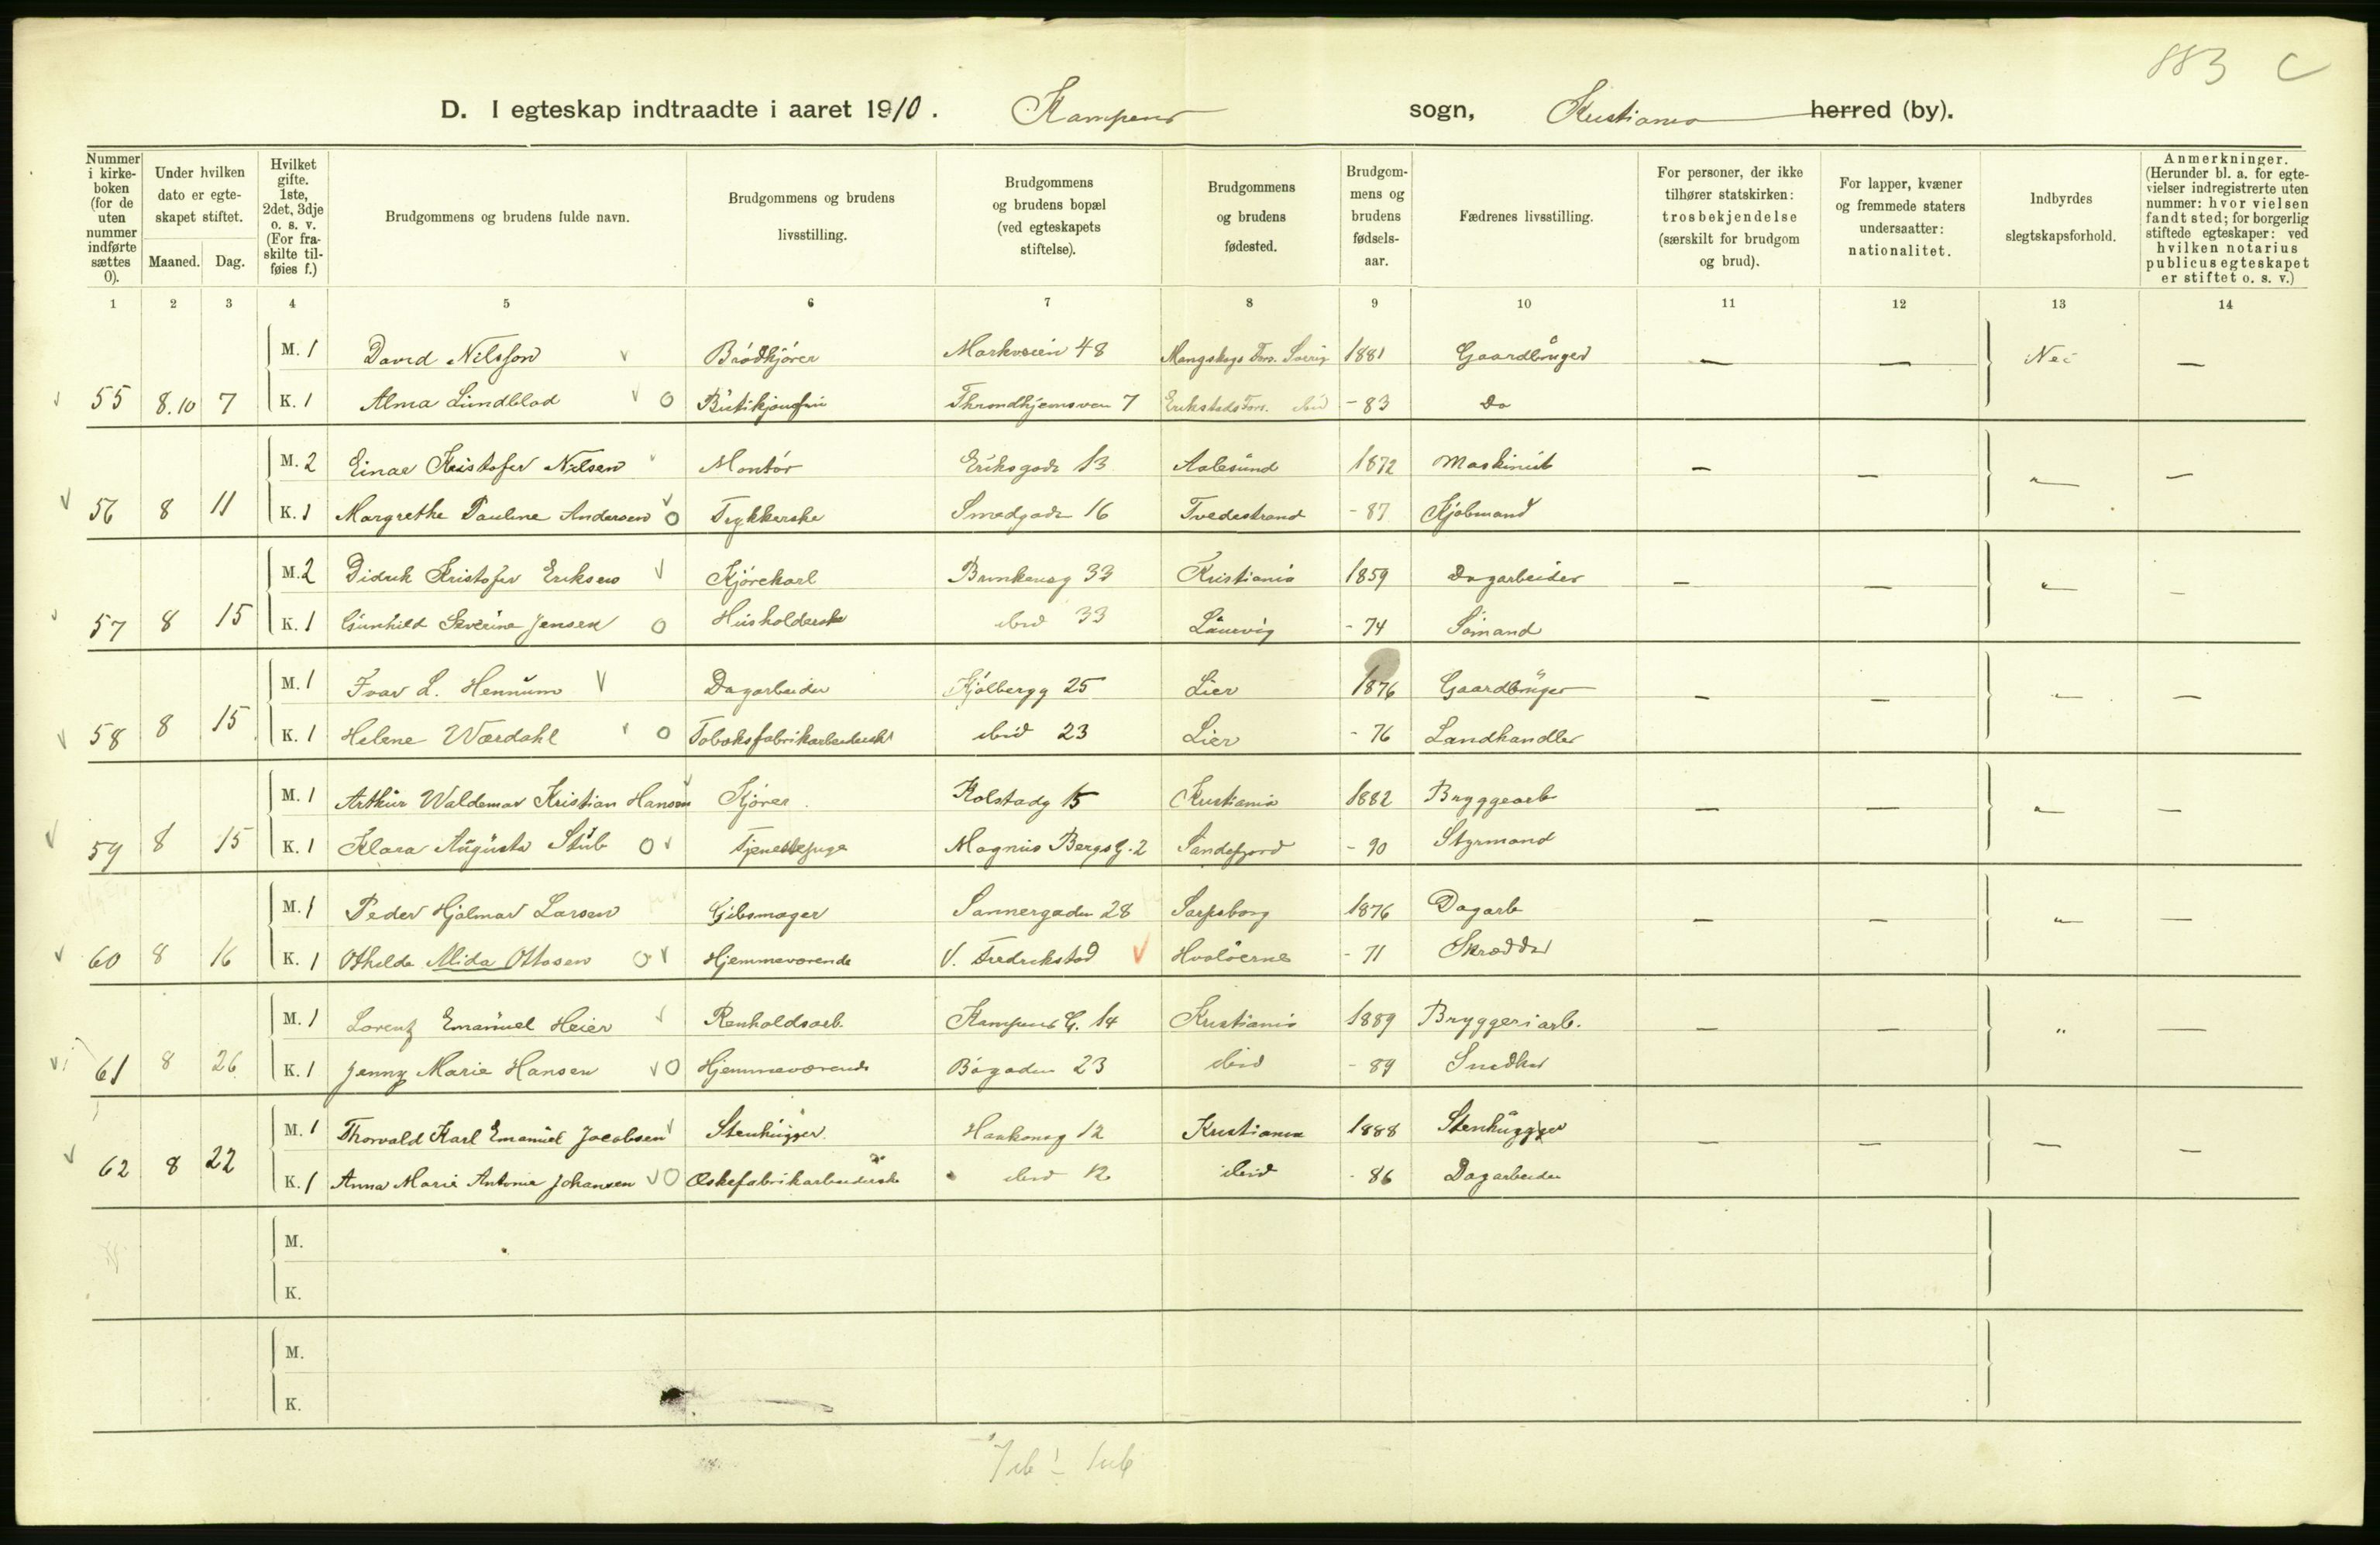 883 C
D. I egteskap indtraadte i aaret 1910. Kampens sogn, Kristiania herred (by).
Nummer i kirkeboken (for de uten nummer indførte sættes 0).
Under hvilken dato er egteskapet stiftet.
Maaned. Dag.
Hvilket gifte. 1ste, 2det, 3dje o. s. v. (For fraskilte tilføies f.)
Brudgommens og brudens fulde navn.
Brudgommens og brudens livsstilling.
Brudgommens og brudens bopæl (ved egteskapets stiftelse).
Brudgommens og brudens fødested.
Brudgommens og brudens fødselsaar.
Fædrenes livsstilling.
For personer, der ikke tilhører statskirken: trosbekjendelse (særskilt for brudgom og brud).
For lapper, kvæner og fremmede staters undersaatter: nationalitet.
Indbyrdes slegtskapsforhold.
Anmerkninger. (Herunder bl. a. for egtevielser indregistrerte uten nummer: hvor vielsen fandt sted; for borgerlig stiftede egteskaper: ved hvilken notarius publicus egteskapet er stiftet o. s. v.)
1 2 3 4 5 6 7 8 9 10 11 12 13 14
M. 1 David Nilsson Brødkjører Markveien 48 Mangskogs Fors. Sverig 1881 Gaardbruger — — Nei —
55 8.10 7 K. 1 Alma Lundblad O Butikjomfru Throndhjemsveien 7 Erikstads Fors. ibid - 83 Do
M. 2 Einar Kristofer Nilsen Montør Eriksgade 13 Aalesund 1872 Maskinist — — " —
56 8 11 K. 1 Margrethe Pauline Andersen O Trykkerske Smedgade 16 Tvedestrand - 87 Kjøbmand
M. 2 Didrik Kristofer Eriksen Kjørekarl Brinkensg 33 Kristiania 1859 Dagarbeider — — " —
57 8 15 K. 1 Gunhild Severine Jensen O Husholderske ibid 33 Laurvig - 74 Sømand
M. 1 Ivar L. Hennum Dagarbeider Kjølbergg 25 Lier 1876 Gaardbruger — — " —
58 8 15 K. 1 Helene Wærdahl O Tobaksfabrikarbeiderske ibid 23 Lier - 76 Landhandler
M. 1 Arthur Waldemar Kristian Hansen Kjører. Kolstadg 15 Kristiania 1882 Bryggearb — — " —
59 8 15 K. 1 Klara Augusta Stub O Tjenestepige Magnus Bergs G. 2 Sandefjord - 90 Styrmand
M. 1 Peder Hjalmar Larsen Gibsmager Sannergaden 28 Sarpsborg 1876 Dagarb — — " —
60 8 16 K. 1 Othelda Alida Ottosen O Hjemmeværende V. Fredrikstad Hvaløerne - 71 Skrædder
M. 1 Lorentz Emanuel Heier Renholdsarb. Kampens G. 14 Kristiania 1889 Bryggeriarb. — — " —
61 8 26 K. 1 Jenny Marie Hansen O Hjemmeværende Bøgaden 23 ibid - 89 Snedker
M. 1 Thorvald Karl Emanuel Jacobsen Stenhugger. Haakonsg 12 Kristiania 1888 Stenhugger — — — —
62 8 22 K. 1 Anna Marie Antonie Johansen O Æskefabrikarbeiderske ibid 12 ibid - 86 Dagarbeider
M.
K.
M.
K.